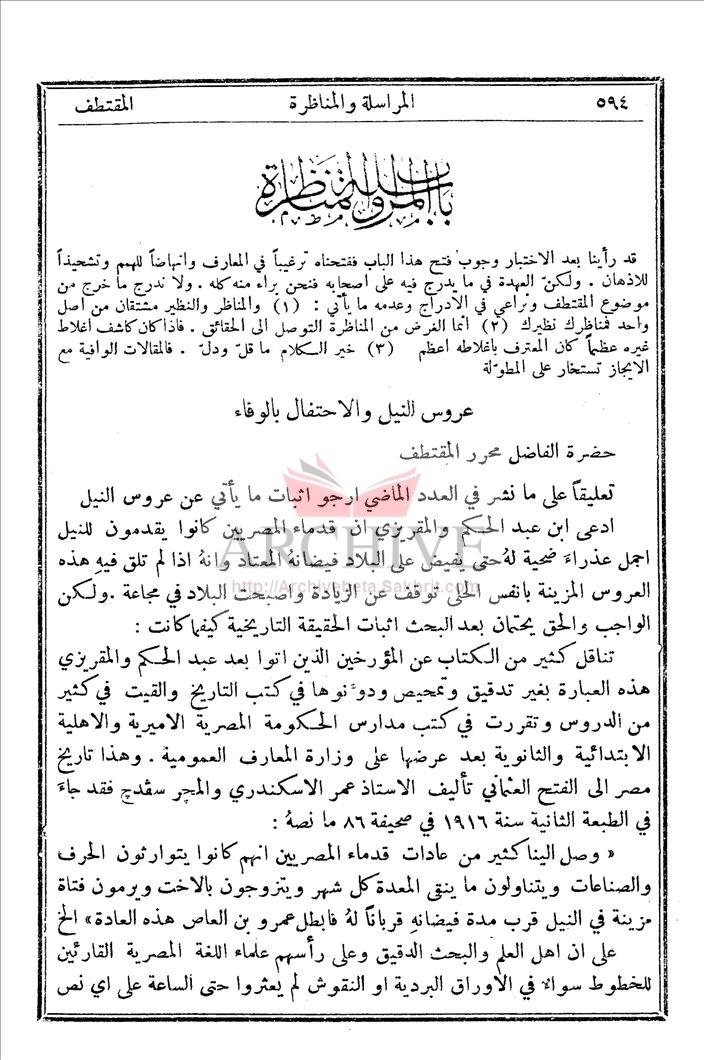 ٥٩٤ المراسلة والمناظرة المقتطف
باب المراسلة والمناظرة
قد رأينا بعد الاختبار وجوب فتح هذا الباب ففتحناه ترغيباً في المعارف وانهاضاً للهمم وتشحيذاً
للاذهان . ولكنّ العهدة في ما يدرج فيه على اصحابه فنحن براء منه كله . ولا ندرج ما خرج عن
موضوع المقتطف ونراعي في الادراج وعدمه ما يأتي : (١) والمناظر والنظير مشتقان من أصل
واحد فمناظرك نظيرك (٢) انما الغرض من المناظرة التوصل الى الحقائق . فاذا كان كاشف أغلاط
غيره عظيماً كان المعترف باغلاطه اعظم (٣) خير الكلام ما قلّ ودلّ . فالمقالات الوافية مع
الايجاز تستخار على المطوّلة
عروس النيل والاحتفال بالوفاء
حضرة الفاضل محرر المقتطف
تعليقاً على ما نشر في العدد الماضي ارجو اثبات ما يأتي عن عروس النيل
ادعى ابن عبد الحكم والمقريزي ان قدماء المصريين كانوا يقدمون للنيل
اجمل عذراء ضحية لهُ حتى يفيض على البلاد فيضانهُ المعتاد وانهُ اذا لم تلق فيهِ هذه
العروس المزينة بانفس الحلى توقف عن الزيادة واصبحت البلاد في مجاعة .ولكن
الواجب والحق يحتمان بعد البحث اثبات الحقيقة التاريخية كيفما كانت :
تناقل كثير من الكتاب عن المؤرخين الذين اتوا بعد عبد الحكم والمقريزي
هذه العبارة بغير تدقيق وتمحيص ودوَّنوها في كتب التاريخ والقيت في كثير
من الدروس وتقررت في كتب مدارس الحكومة المصرية الاميرية والاهلية
الابتدائية والثانوية بعد عرضها على وزارة المعارف العمومية . وهذا تاريخ
مصر الى الفتح العثماني تأليف الاستاذ عمر الاسكندري والميجر سفدج فقد جاءَ
في الطبعة الثانية سنة ١٩١٦ في صحيفة ٨٦ ما نصهُ :
« وصل الينا كثير من عادات قدماء المصريين انهم كانوا يتوارثون الحرف
والصناعات ويتناولون ما ينقى المعدة كل شهر ويتزوجون بالاخت ويرمون فتاة
مزينة في النيل قرب مدة فيضانهِ قرباناً لهُ فابطل عمرو بن العاص هذه العادة» الخ
على ان اهل العلم والبحث الدقيق وعلى رأسهم علماء اللغة المصرية القارئين
للخطوط سوالا في الاوراق البردية او النقوش لم يعثروا حتى الساعة على اي نص
ARCHIVE
http://Archivebeta.Sakhrit.com